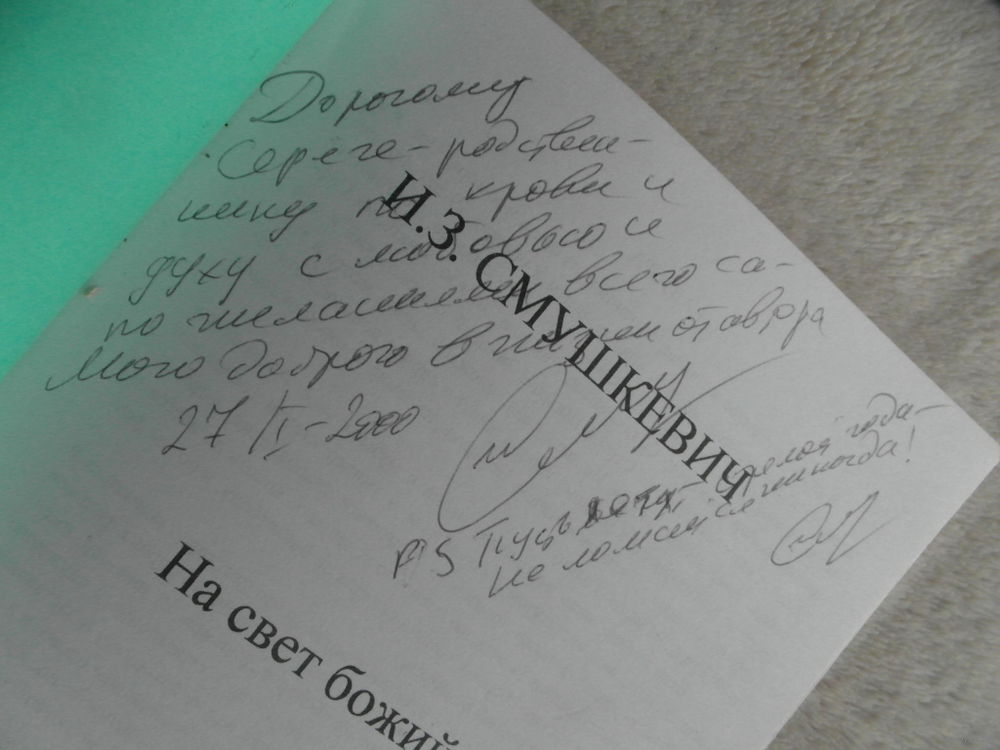 Дорогому
Сереге - родствен-
нику по крови и
духу с любовью и
пожеланиями всего са-
мого доброго в жизни от автора
27/II-2000
И.З. СМУШКЕВИЧ
PS Пусть летят стрелой года -
не ломайся никогда!
На свет божий